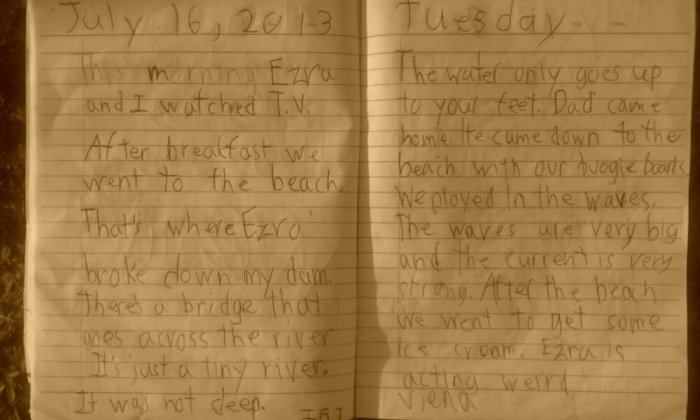 July 16, 2013
This morning Ezra
and I watched T.V.
After breakfast we
went to the beach.
That's where Ezra
broke down my dam.
There's a bridge that
goes across the river
It's just a tiny river.
It was not deep.
Tuesday
The water only goes up
to your feet. Dad came
home. He came down to the
beach with our buogie boards.
We played in the waves.
The waves are very big
and the current is very
strong. After the beach
we went to get some
Ice cream. Ezra is
acting weird.
Viena